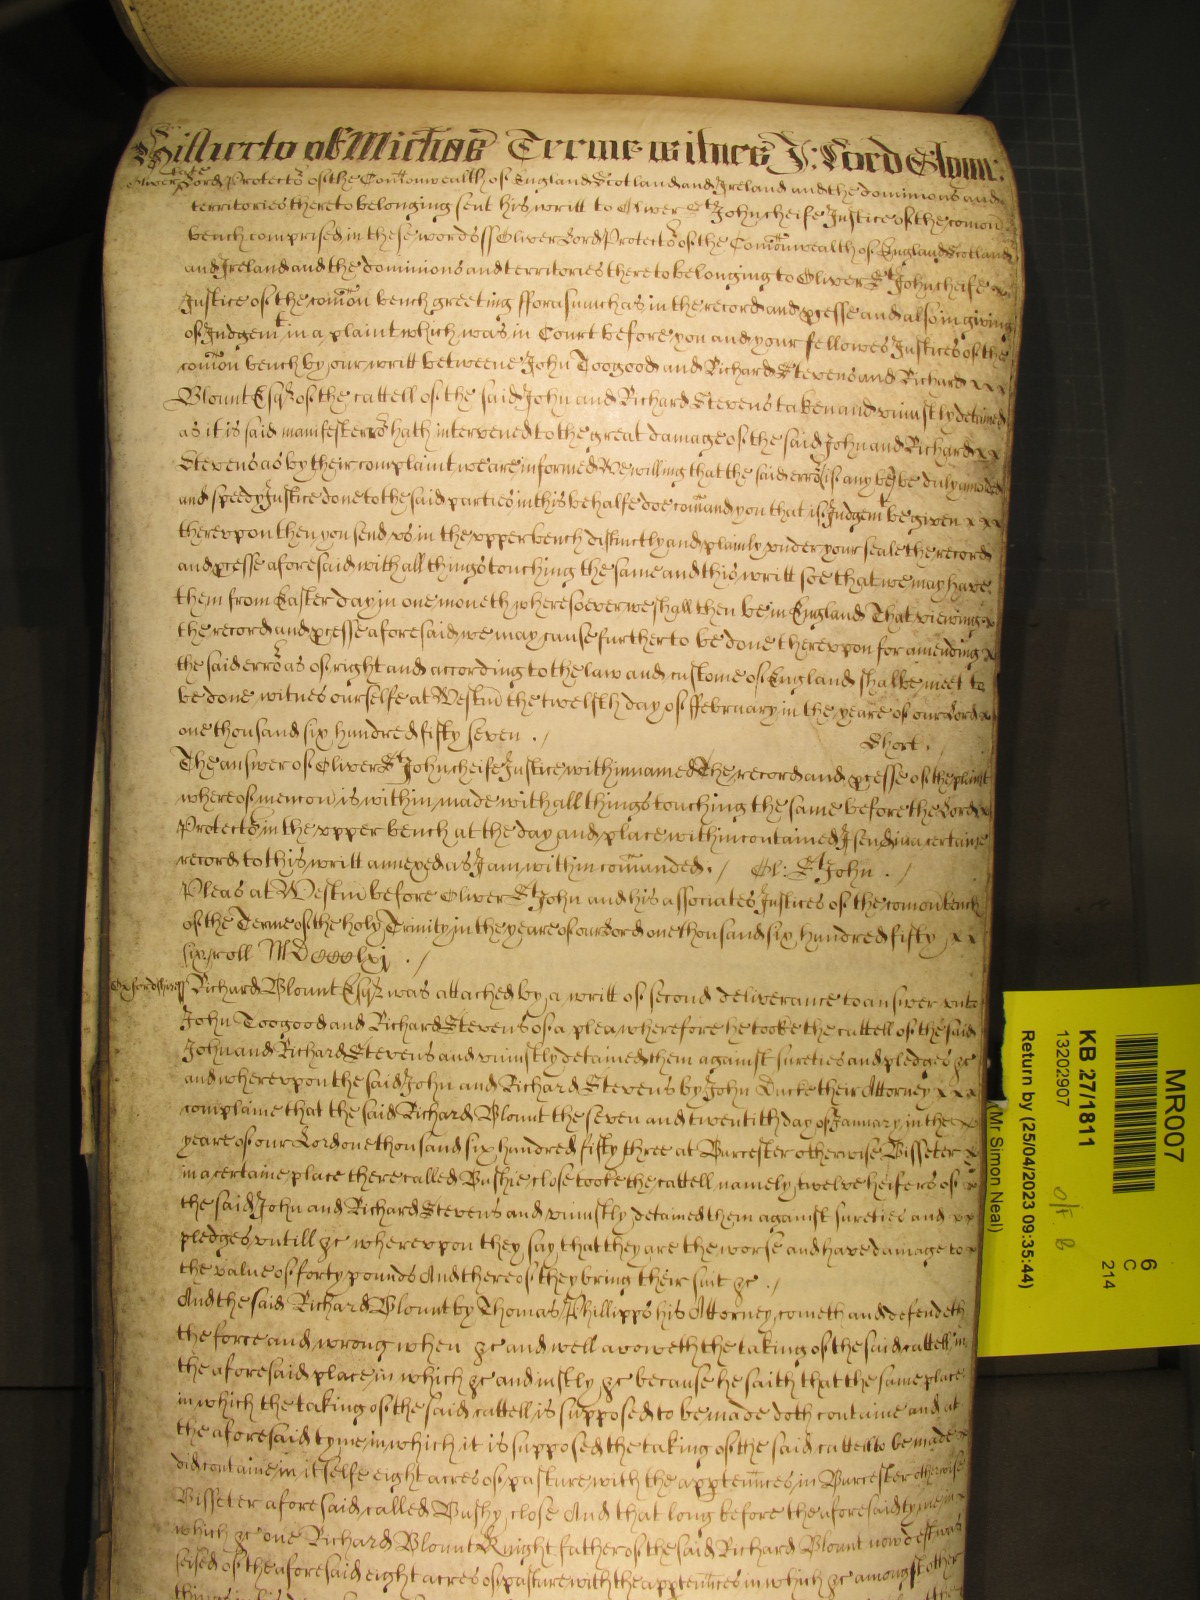 Hitherto of Mich̃as Terme witnes J: Lord Glynn:
Oliver Lord Protector of the Com̃onwealth of England Scotland and Ireland and the dominions and
territories thereto belonging sent his writt to Oliver St John cheife Justice of the com̃on
bench comprised in these words ss Oliver Lord Protector of the Com̃onwealth of England Scotland
and Ireland and the dominions and territories thereto belonging to Oliver St John cheife x
Justice of the com̃on bench greeting fforasmuch as in the record and p̱cesse and also in giving
of Judgemt in a plaint which was in Court before you and your fellowes Justices of the
com̃on bench by our writt betweene John Toogood and Richard Stevens and Richard x x x
Blount Esqr of the cattell of the said John and Richard Stevens taken and uniustly detained
as it is said manifest error hath intervened to the great damage of the said John and Richard x x
Stevens as by their complaint we are informed We willing that the said error (if any be) be duly amended
and speedy Justice done to the said parties in this behalfe doe com̃and you that if Judgemt be given x x x
therevpon then you send vs in the vpper bench distinctly and plainly vnder your seale the record
and p̱cesse aforesaid with all things touching the same and this writt soe that we may have
them from Easter day in one moneth wheresoever we shall then be in England That viewing x
the record and p̱cesse aforesaid we may cause further to be done therevpon for amending x
the said error as of right and according to the law and custome of England shalbe meet to
be done witnes ourselfe at Westm̃ the twelfth day of ffebruary in the yeare of our Lord x
one thousand six hundred fifty seven . /
Short . /
The answer of Oliver St John cheife Justice within named The record and p̱cesse of the plaint
whereof menc̃on is within made with all things touching the same before the Lord x
Protector in the vpper bench at the day and place within contained I send in a certaine
record to this writt annexed as I am within com̃anded . / Ol: St John . /
Pleas at Westm̃ before Oliver St John and his associates Justices of the com̃on bench
of the Terme of the holy Trinity in the yeare of our Lord one thousand six hundred fifty x x
six roll MDCCCClxj . /
Oxfordshire ss Richard Blount Esqr was attached by a writt of second deliverance to answer vnto
John Toogood and Richard Stevens of a plea wherefore he tooke the cattell of the said
John and Richard Stevens and uniustly detained them against sureties and pledges &c
and wherevpon the said John and Richard Stevens by John Ducke their Attorney x x x
complaine that the said Richard Blount the seven and twentith day of January in the x
yeare of our Lord one thousand six hundred fifty three at Burcester otherwise Bisseter x
in a certaine place there called Bushie close tooke the cattell namely twelve heifers of x
the said John and Richard Stevens and uniustly detained them against sureties and x x
pledges vntill &c wherevpon they say that they are the worse and have damage to x
the value of forty pounds And thereof they bring their suit &c . /
And the said Richard Blount by Thomas Phillipps his Attorney cometh and defendeth
the force and wrong when &c and well avoweth the taking of the said cattell in
the aforesaid place in which &c and iustly &c because he saith that the same place
in which the taking of the said cattell is supposed to be made doth containe and at
the aforesaid tyme in which it is supposed the taking of the said cattell to be made x
did containe in it selfe eight acres of pasture with the apptenñces in Burcester otherwise
Bisseter aforesaid called Bushy close And that long before the aforesaid tyme in x
which &c one Richard Blount Knight father of the said Richard Blount now deft was
seised of the aforesaid eight acres of pasture with the apptenñces in which &c amongst other
MR007
KB 27/1811
13202907
Return by (25/04/2023 09:35:44)
(Mr Simon Neal)
6
C
214
O/F B